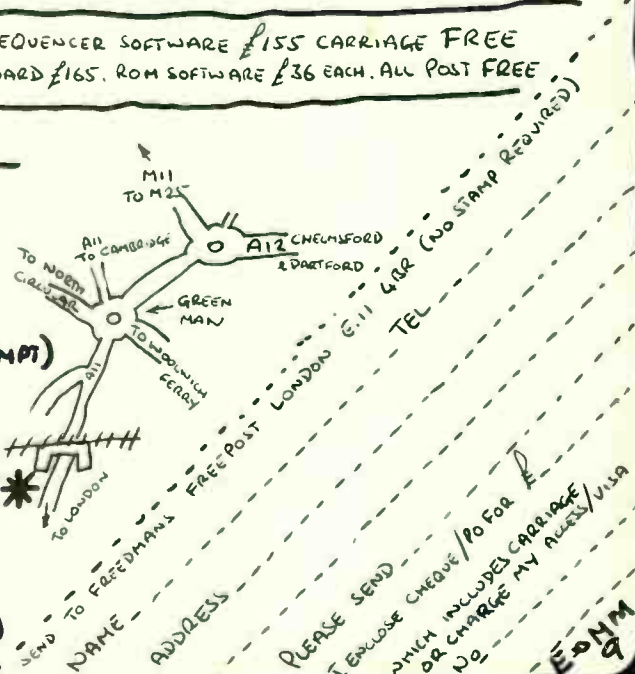 EQUENCER SOFTWARE £155 CARRIAGE FREE
ARD £165. ROM SOFTWARE £36 EACH. ALL POST FREE
M11
TO M25
A11
TO CAMBRIDGE
A12
CHELMSFORD
& DARTFORD
TO NORTH
CIRCULAR
GREEN
MAN
TO WOOLWICH
FERRY
MPT)
A11
TO LONDON
SEND TO FREEDMANS FREEPOST LONDON E.11 4BR (NO STAMP REQUIRED)
NAME
TEL
ADDRESS
PLEASE SEND
I ENCLOSE CHEQUE/PO FOR £
WHICH INCLUDES CARRIAGE
OR CHARGE MY ACCESS/VISA
NO
E&MM
9